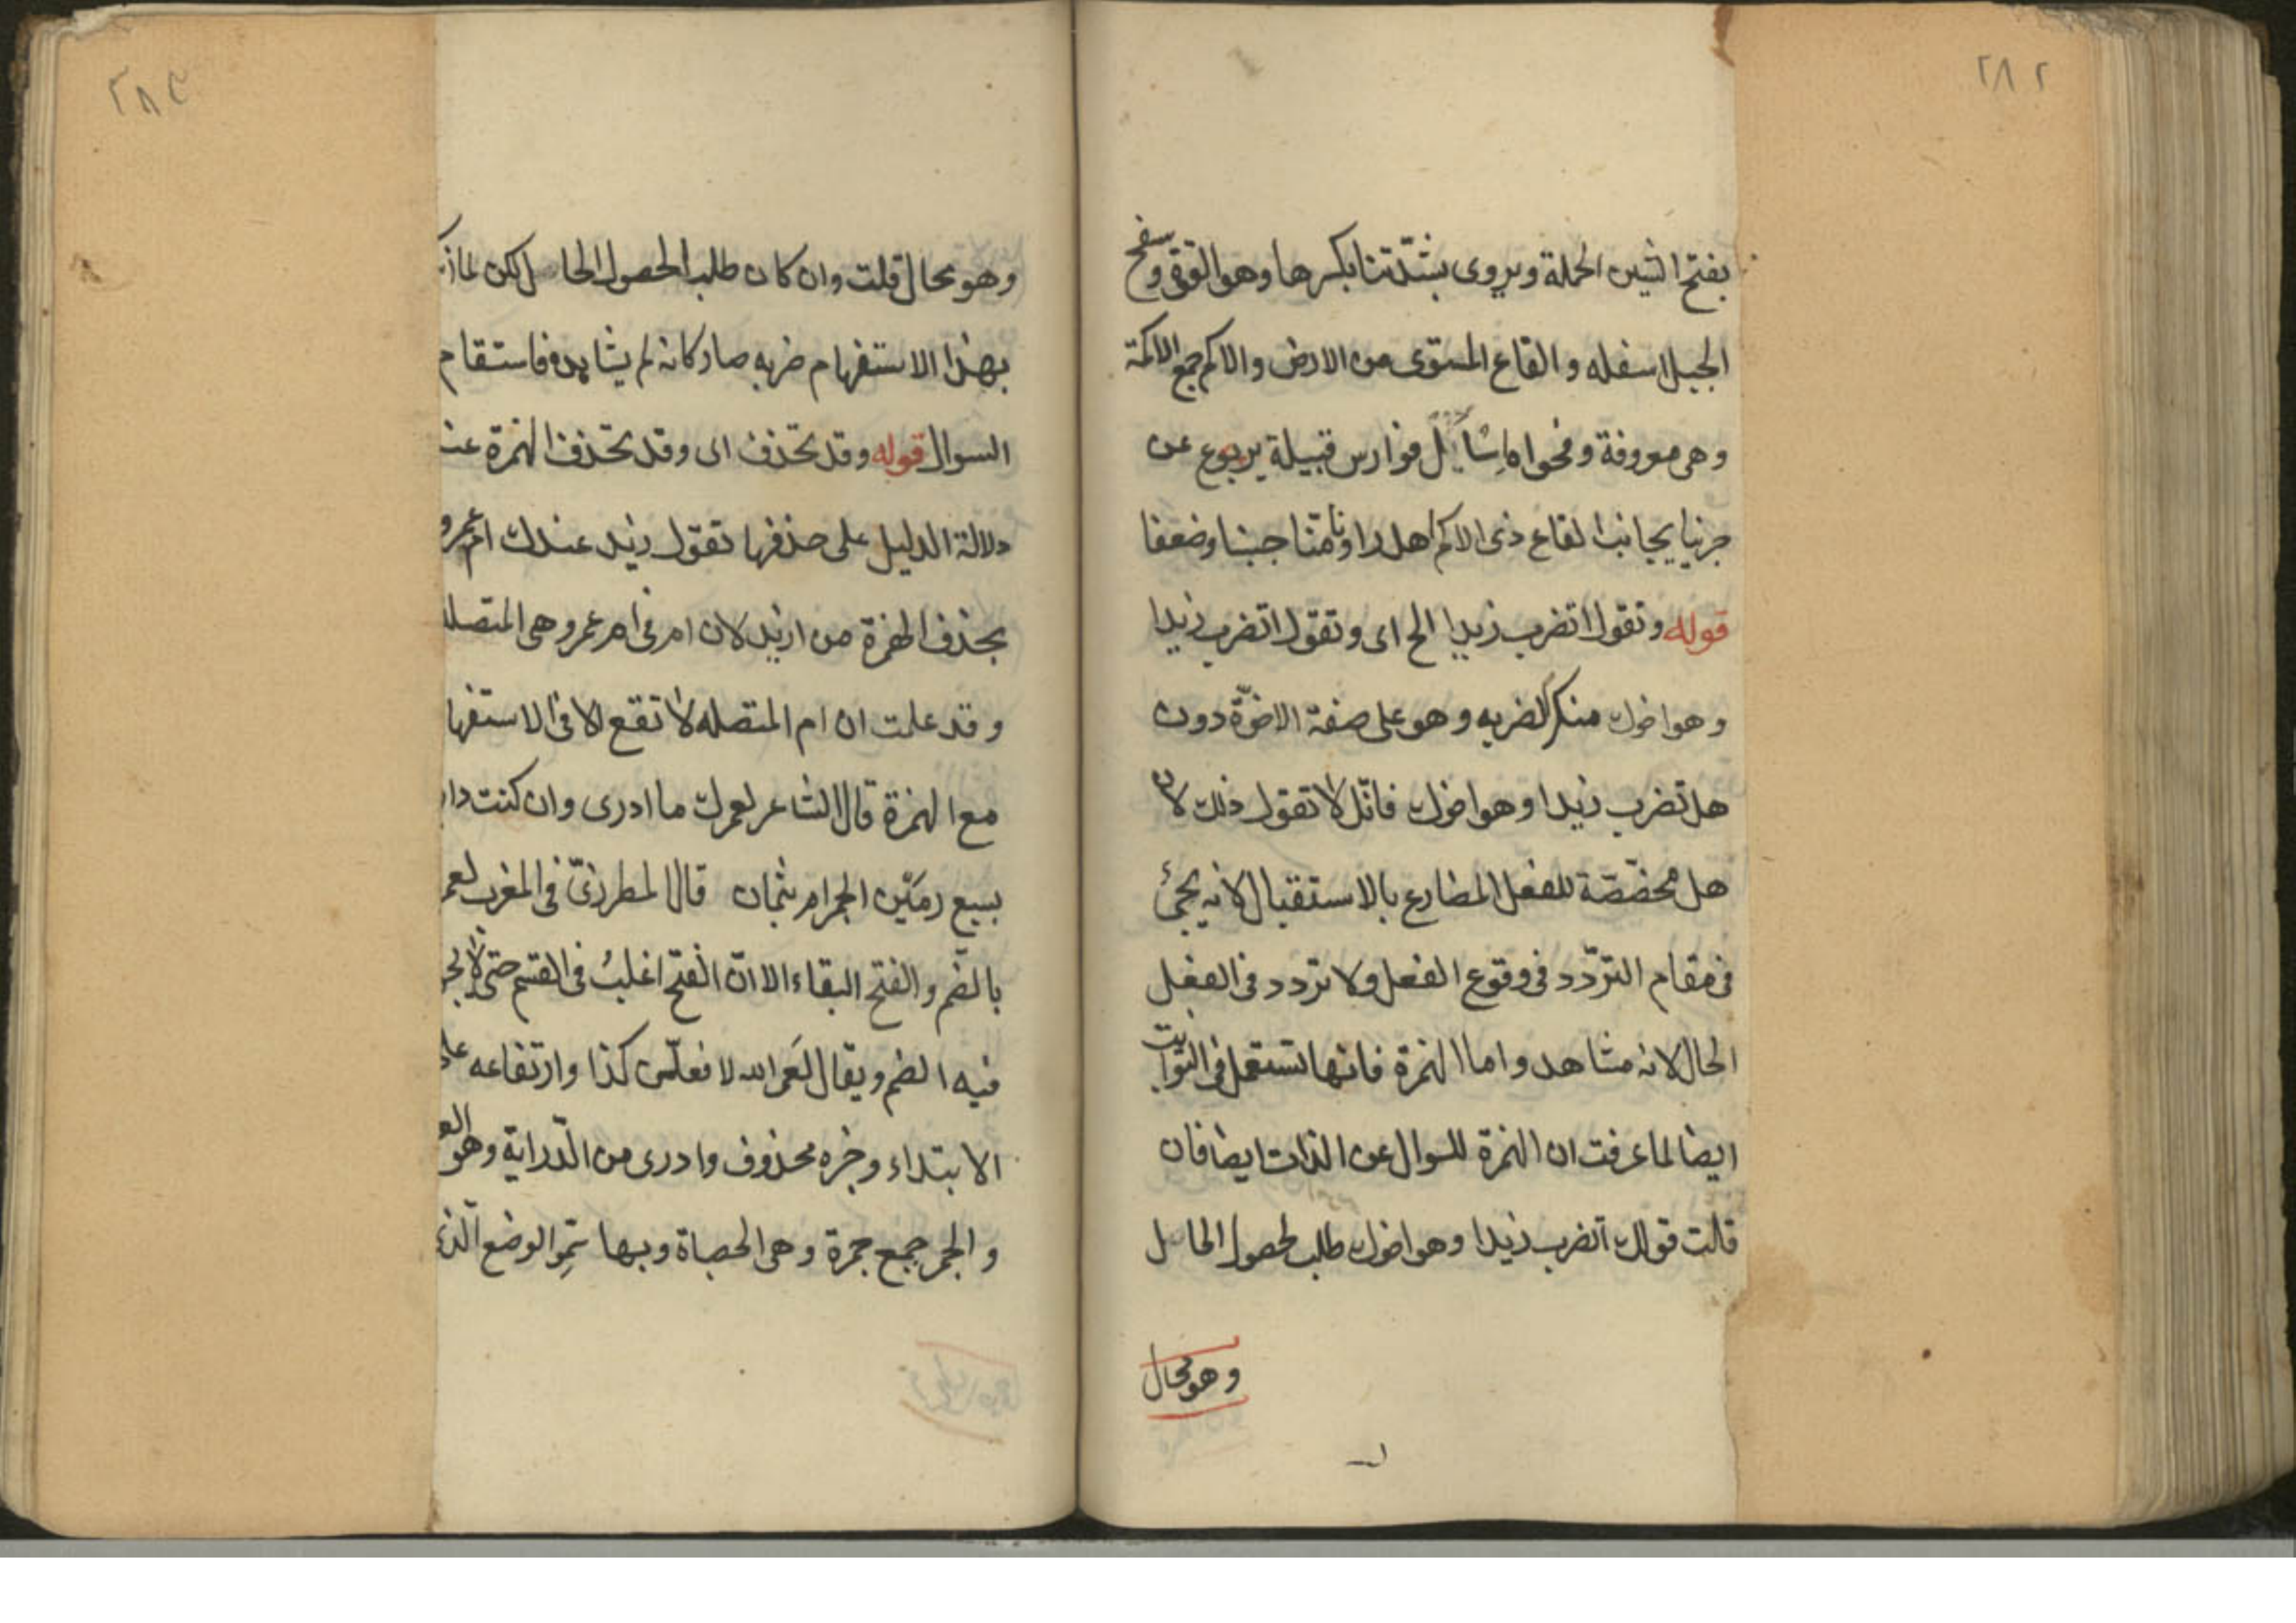 ٢٨٢
بفتح الشين الحملة ويروى بشدّتنا بكسرها وهو القوة وسفح
الجبل اسفله والقاع المستوى من الارض والاكم جمع الاكمة
وهى معروفة وفحواه سائل فوارس قبيلة يربوع عن
حربنا بجانب القاع ذى الاكم اهل راونا متنا جبنا وضعفا
قوله وتقول اتضرب زيدا الخ اى وتقول اتضرب زيدا
وهو اخوك منكر لضربه وهو على صفة الاخوّة دون
هل تضرب زيدا وهو اخوك فانّك لا تقول ذلك لان
هل مخصّصة للفعل المضارع بالاستقبال لانه يجئ
فى مقام التردّد فى وقوع الفعل ولا تردد فى الفعل
الحال لانه مشاهد واما الهمزة فانها تستعمل فى الثوابت
ايضا لما عرفت ان الهمزة للسوال عن الذات ايضا فان
قلت قولك أتضرب زيدا وهو اخوك طلب لحصول الحاصل
وهو محال
٢٨٣
وهو محال قلت وان كان طلب الحصول الحاصل لكن لما
بهذا الاستفهام ضربه صار كانه لم يشاهده فاستقام
السوال قوله وقد تحذف اى وقد تحذف الهمزة عند
دلالة الدليل على حذفها تقول زيد عندك ام عمرو
بحذف الهمزة من ازيد لان ام فى ام عمرو هى المتصلة
وقد علمت ان ام المتصله لا تقع الا فى الاستفها
مع الهمزة قال الشاعر لعمرك ما ادرى وان كنت دار
بسبع رمين الجمر ام بثمان قال المطرزىّ فى المغرب لعمر
بالضّم والفتح البقاء الا انّ الفتح اغلب فى القسم حتى لا يجو
فيه الضم ويقال لَعَمر الله لافعلنّ كذا وارتفاعه على
الابتداء وخبره محذوف وادرى من الدّراية وهو
والجمر جمع جمرة وهى الحصاة وبها سمّى الوضع الّذى